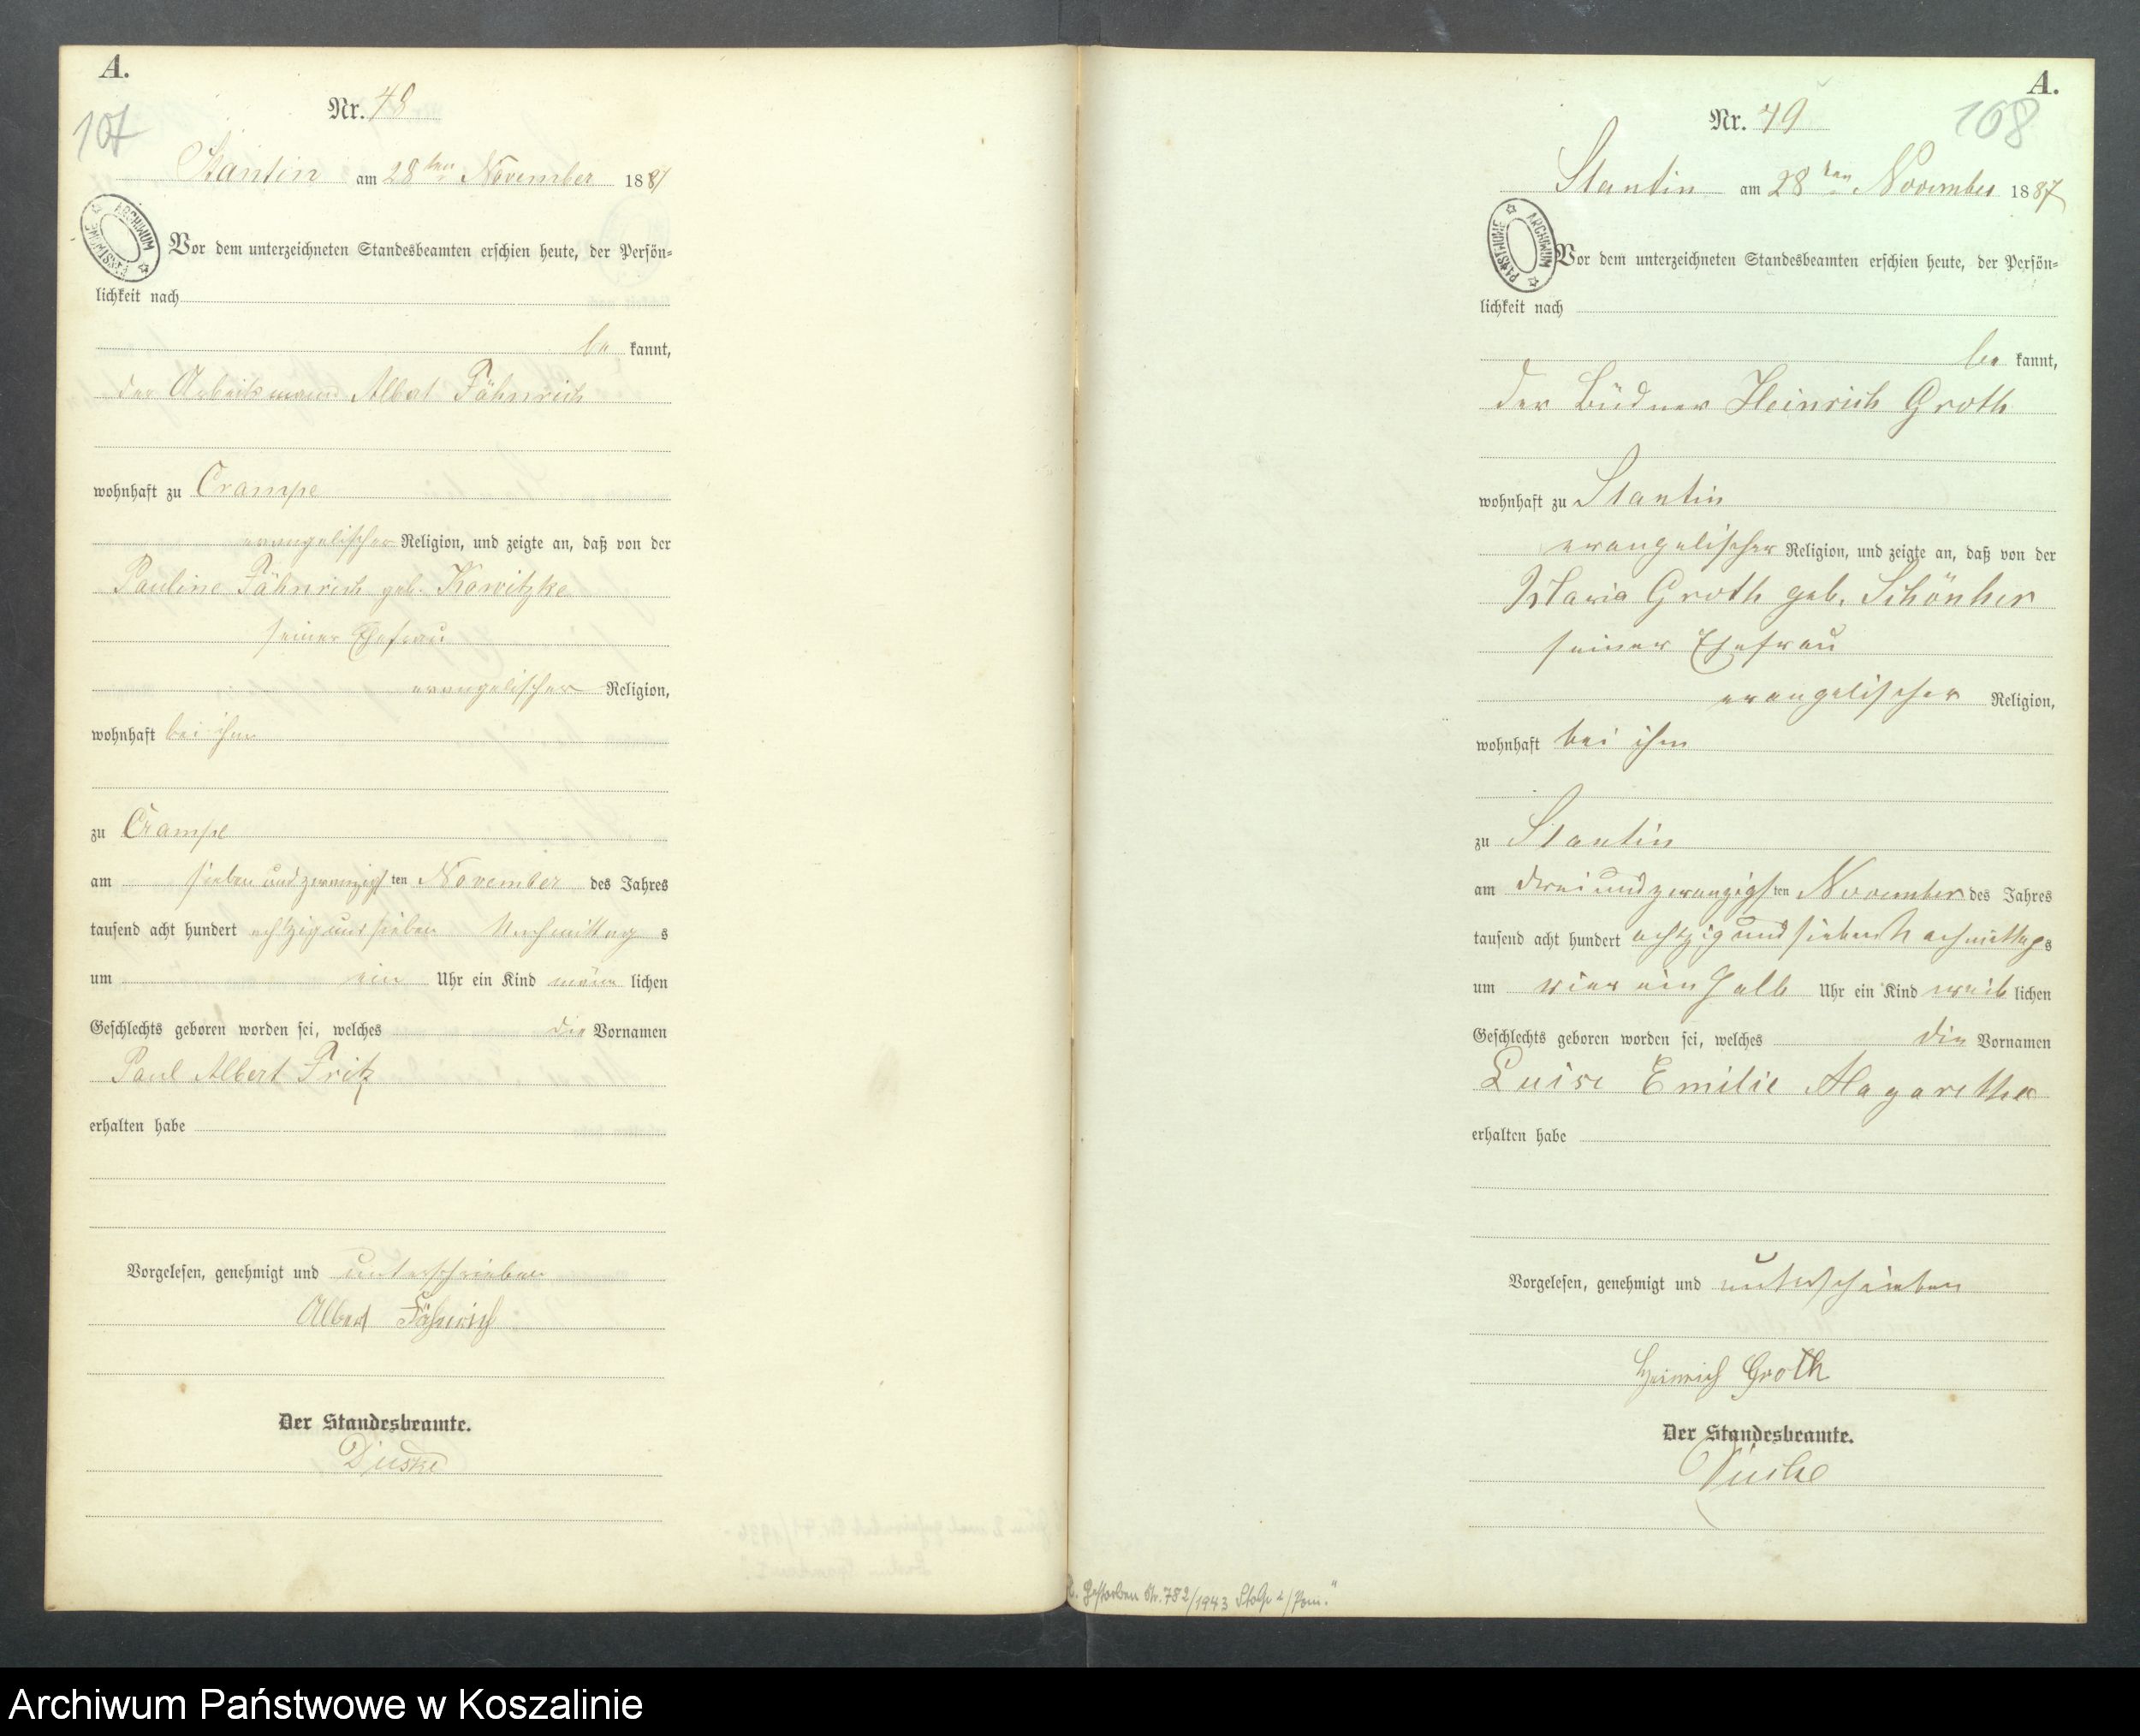 A.
107
Nr. 48
Stantin am 28ten November 1887
ARCHIWUM PAŃSTWOWE
Vor dem unterzeichneten Standesbeamten erschien heute, der Persön-
lichkeit nach
be kannt,
der Arbeitsmann Albert Fähnrich
wohnhaft zu Crampe
evangelischer Religion, und zeigte an, daß von der
Pauline Fähnrich geb. Kawitzke
seiner Ehefrau
evangelischer Religion,
wohnhaft bei ihm
zu Crampe
am sieben und zwanzigsten November des Jahres
tausend acht hundert achtzig und sieben Nachmittags
um ein Uhr ein Kind männlichen
Geschlechts geboren worden sei, welches die Vornamen
Paul Albert Fritz
erhalten habe
Vorgelesen, genehmigt und unterschrieben
Albert Fähnrich
Der Standesbeamte.
A.
168
Nr. 49
Stantin am 28ten November 1887
ARCHIWUM PAŃSTWOWE
Vor dem unterzeichneten Standesbeamten erschien heute, der Persön-
lichkeit nach
be kannt,
der Büdner Heinrich Groth
wohnhaft zu Stantin
evangelischer Religion, und zeigte an, daß von der
Maria Groth geb. Schönher
seiner Ehefrau
evangelischer Religion,
wohnhaft bei ihm
zu Stantin
am drei und zwanzigsten November des Jahres
tausend acht hundert achtzig und sieben Nachmittags
um vier ein halb Uhr ein Kind weiblichen
Geschlechts geboren worden sei, welches die Vornamen
Luise Emilie Magarethe
erhalten habe
Vorgelesen, genehmigt und unterschrieben
Heinrich Groth
Der Standesbeamte.
Gestorben Nr. 782/1943 Stolp i/Pom.
Archiwum Państwowe w Koszalinie